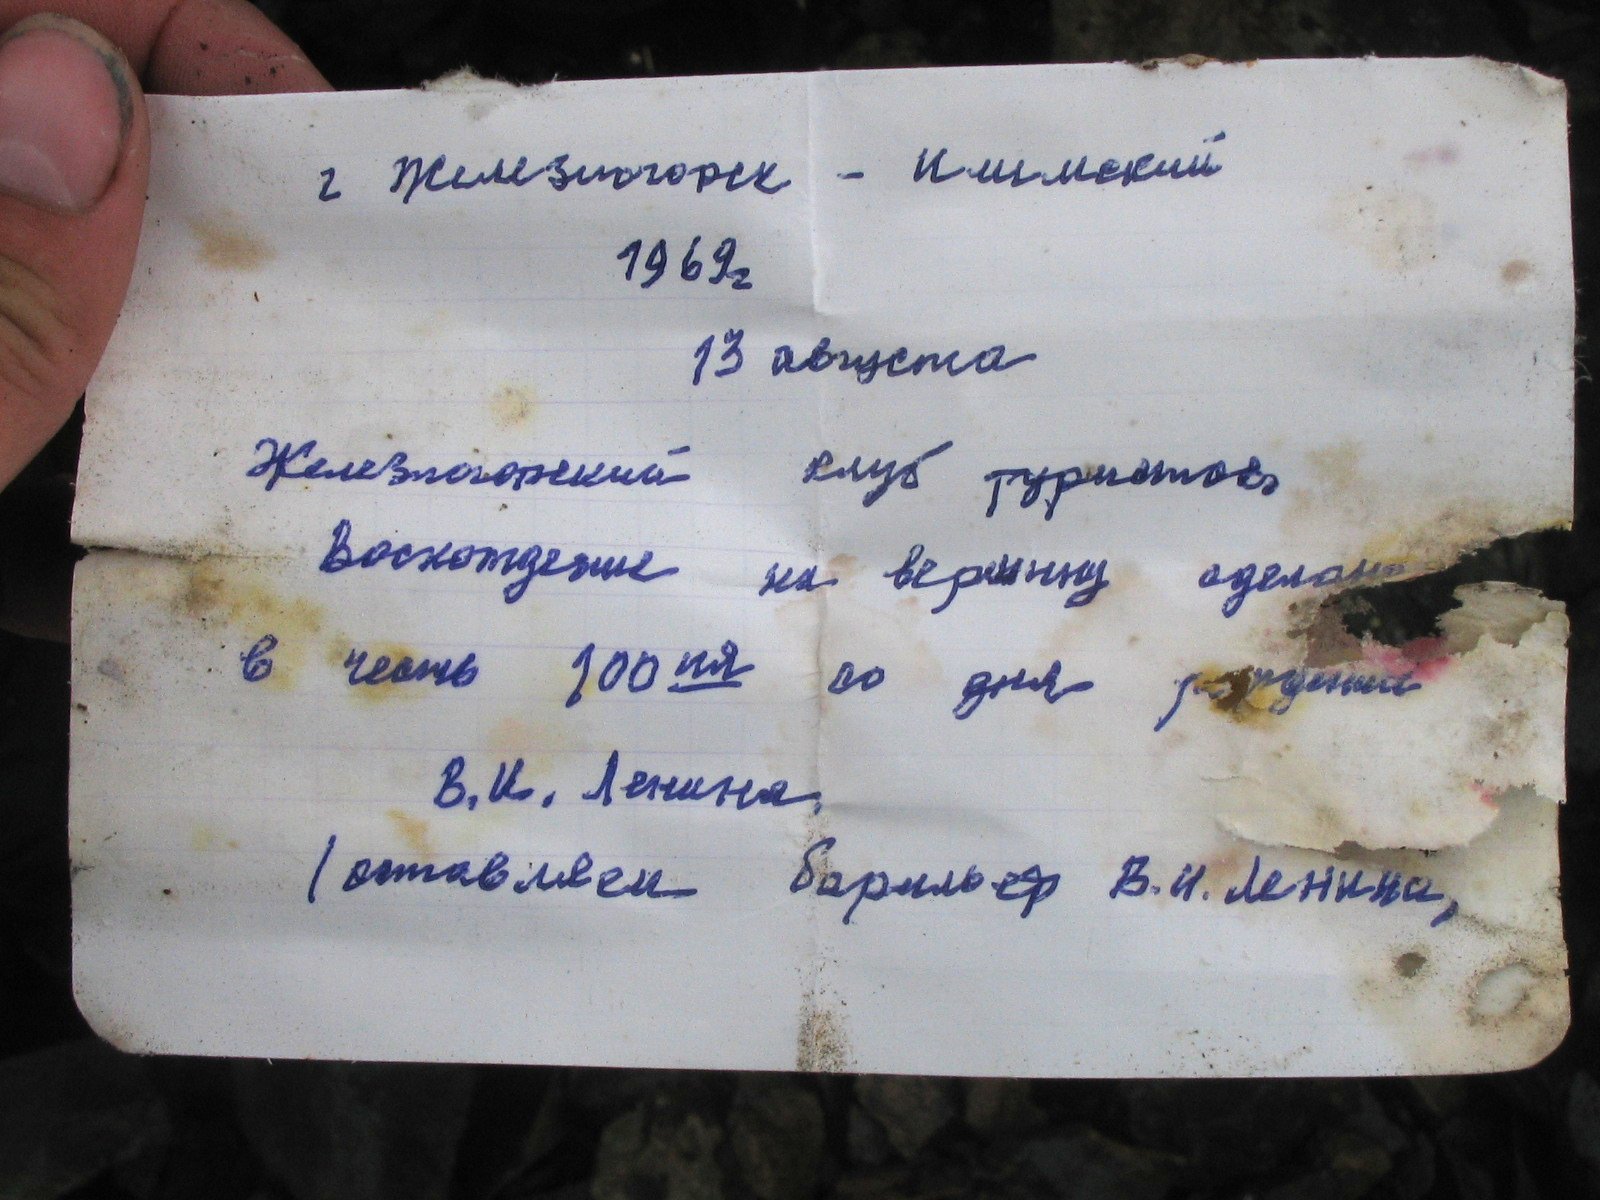 г Железногорск - Илимский
1969г
13 августа
Железногорский клуб туристов
Восхождение на вершину сделано
в честь 100 ия со дня рождения
В.И. Ленина.
/оставляем барельеф В.И. Ленина,